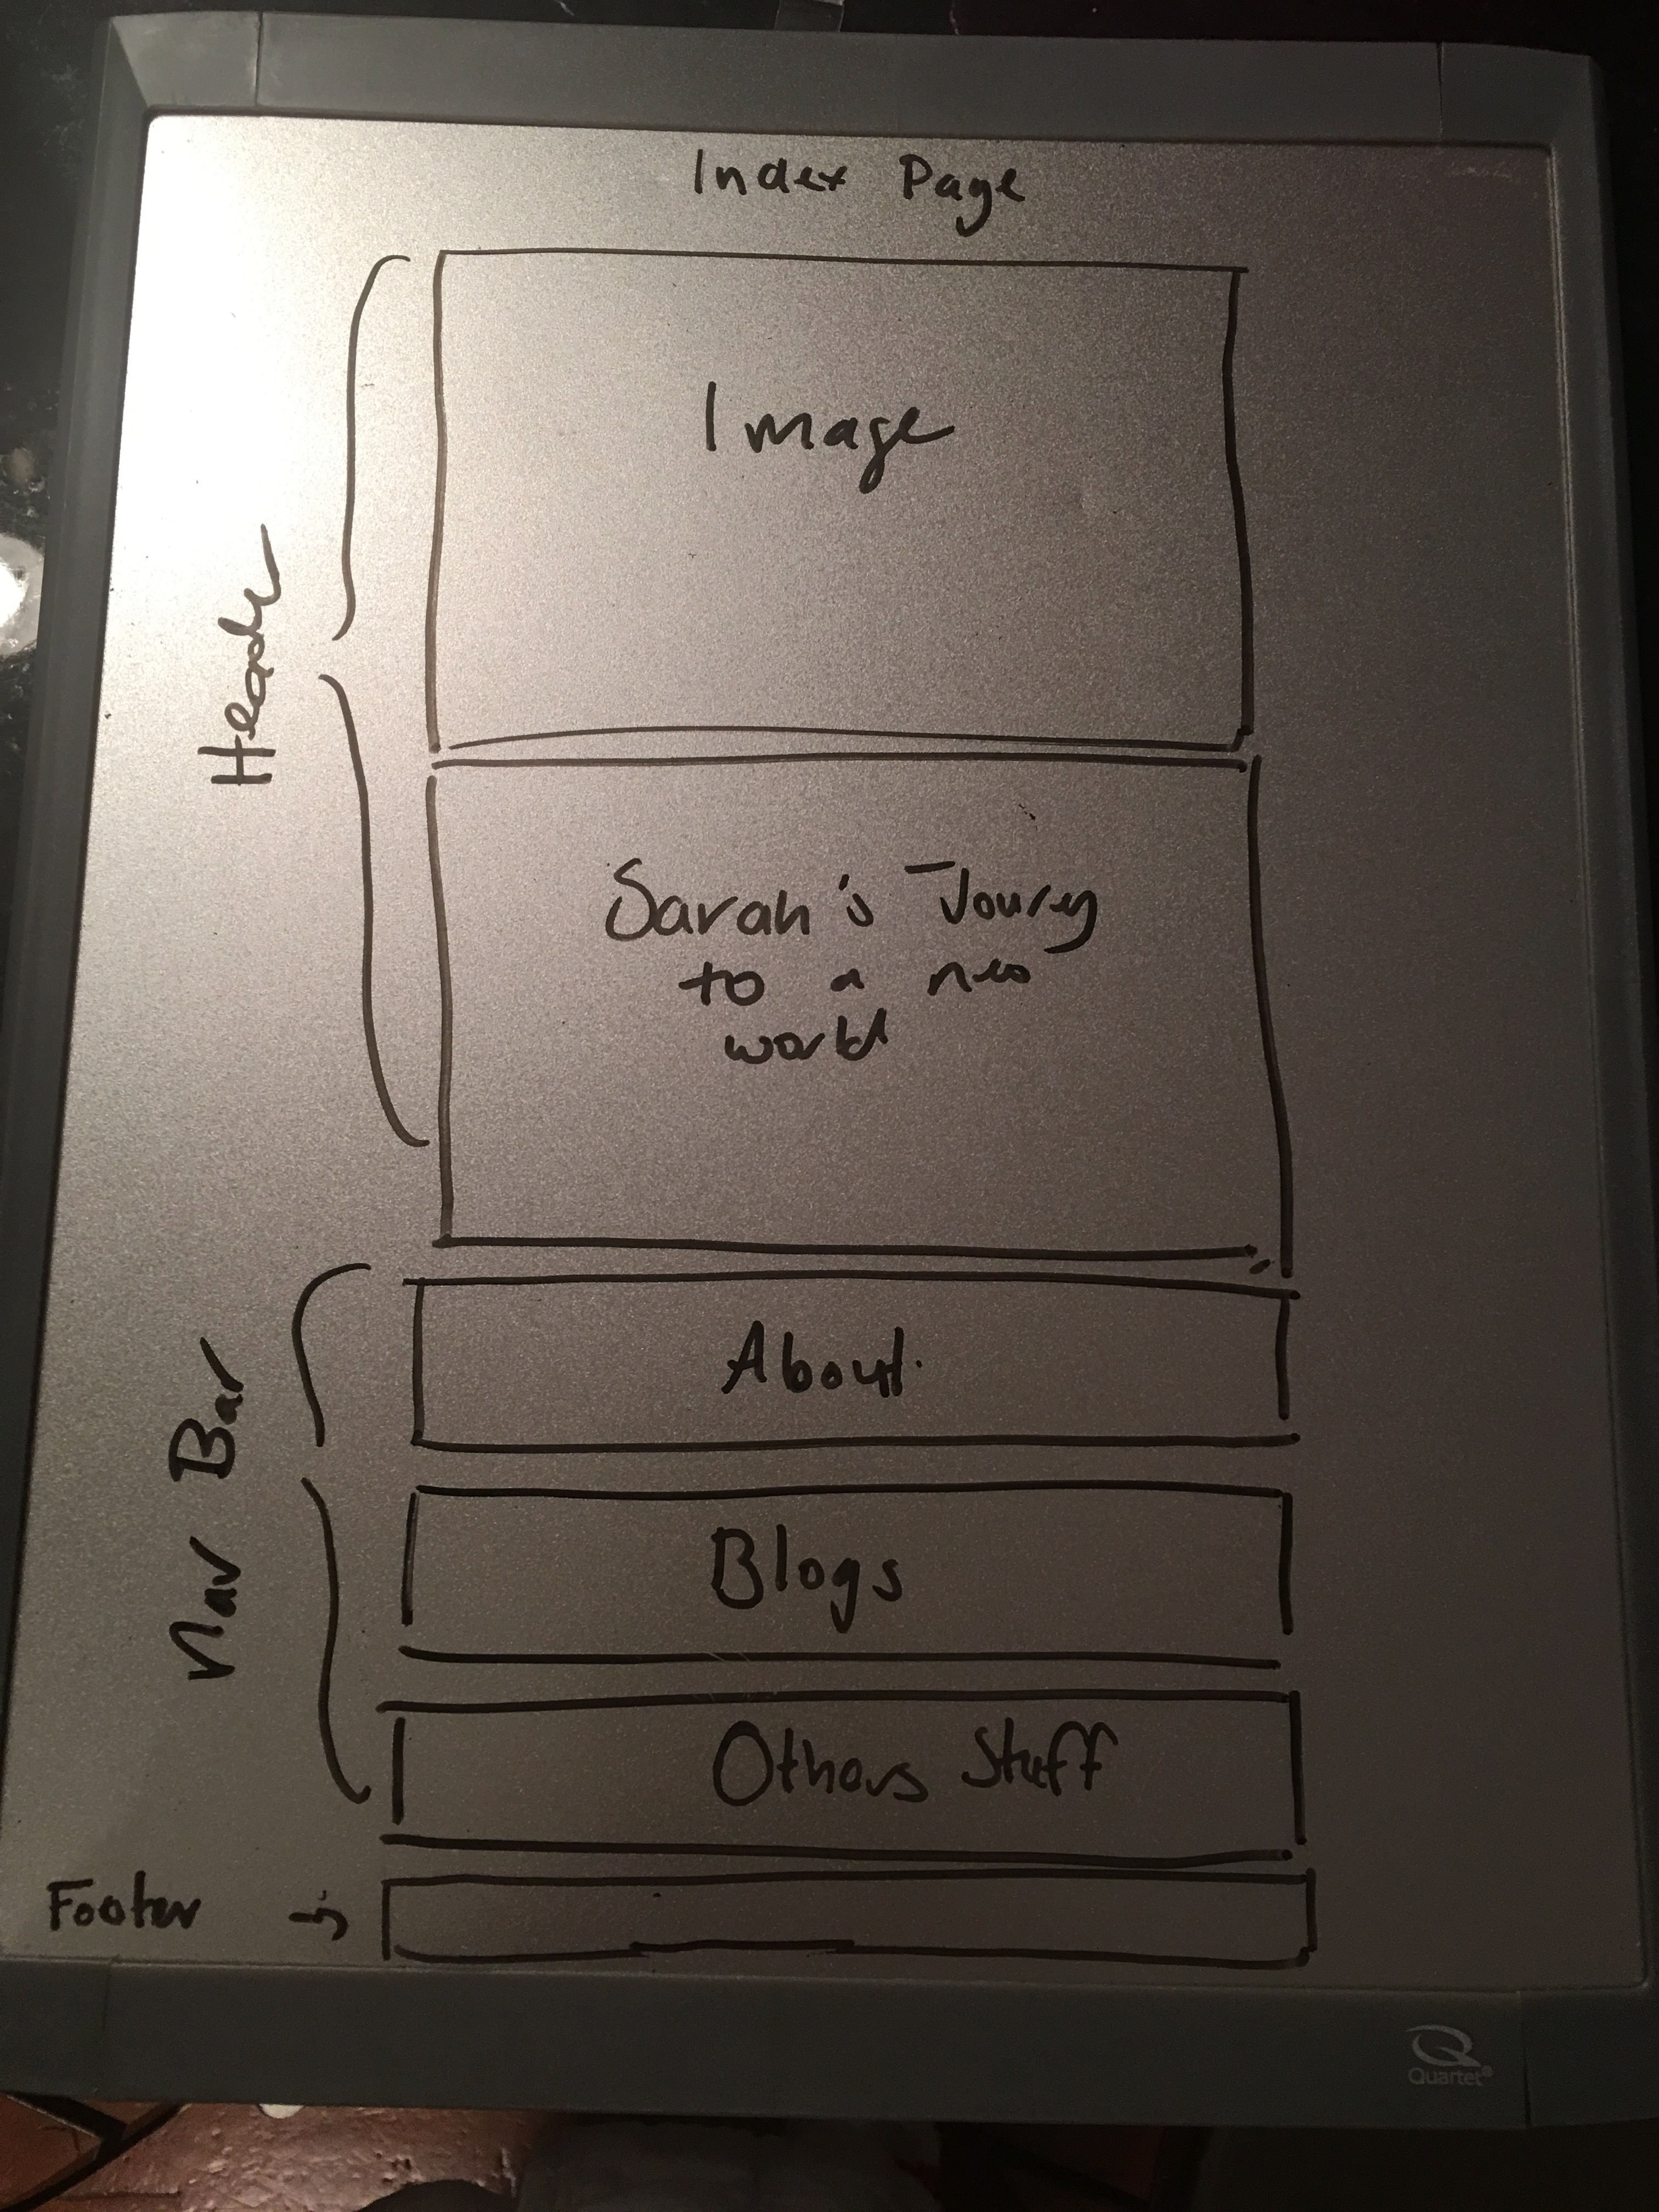 Index Page
Header
Image
Sarah's Jourey
to a new
world
Nav Bar
About
Blogs
Others Stuff
Footer
Quartet®